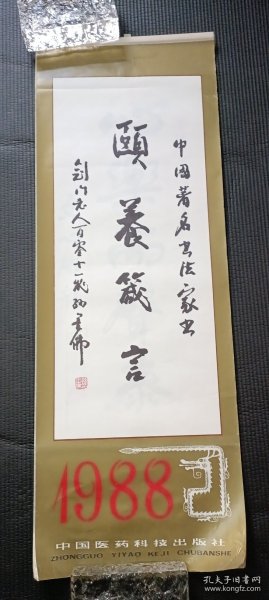 中国著名书法家书
颐养箴言
剑门老人百零十一岁孙墨佛
1988
中国医药科技出版社
ZHONGGUO YIYAO KEJI CHUBANSHE
孔夫子旧书网